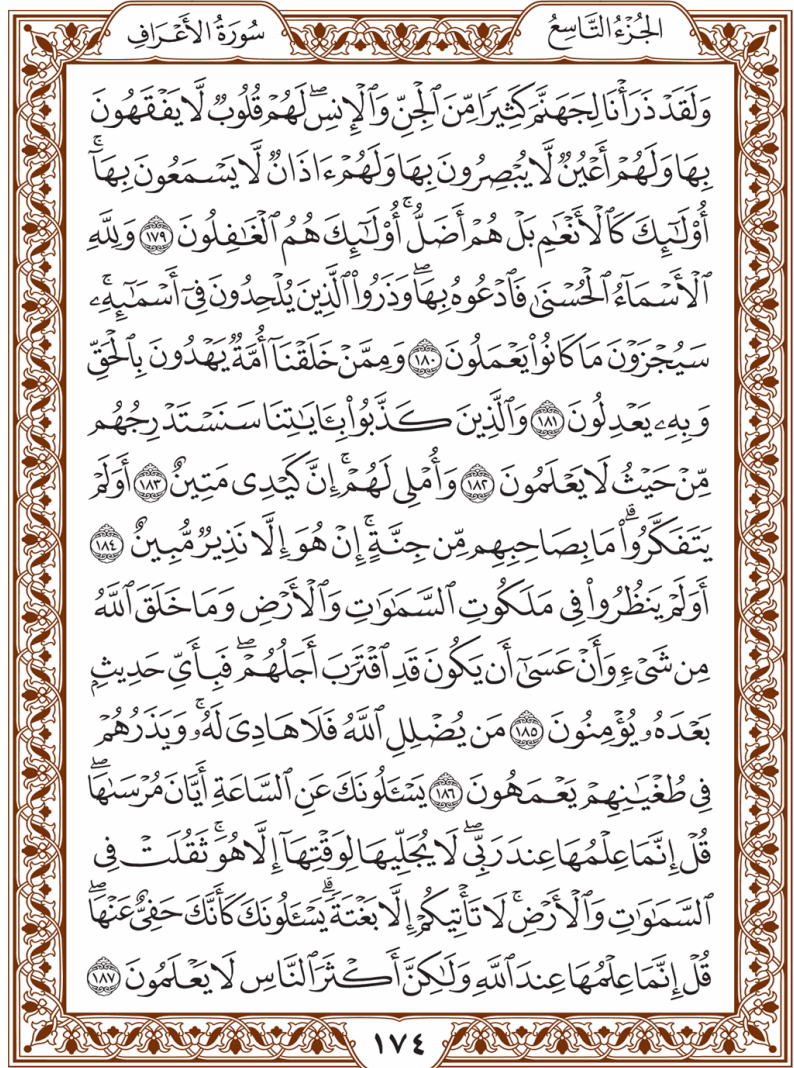 الجُزْءُ التَّاسِعُ
سُورَةُ الأَعْرَافِ
وَلَقَدْ ذَرَأْنَا لِجَهَنَّمَ كَثِيرًا مِّنَ ٱلْجِنِّ وَٱلْإِنسِۖ لَهُمْ قُلُوبٌ لَّا يَفْقَهُونَ
بِهَا وَلَهُمْ أَعْيُنٌ لَّا يُبْصِرُونَ بِهَا وَلَهُمْ ءَاذَانٌ لَّا يَسْمَعُونَ بِهَآۚ
أُوْلَـٰٓئِكَ كَٱلْأَنْعَـٰمِ بَلْ هُمْ أَضَلُّۚ أُوْلَـٰٓئِكَ هُمُ ٱلْغَـٰفِلُونَ ١٧٩ وَلِلَّهِ
ٱلْأَسْمَآءُ ٱلْحُسْنَىٰ فَٱدْعُوهُ بِهَاۖ وَذَرُواْ ٱلَّذِينَ يُلْحِدُونَ فِىٓ أَسْمَـٰٓئِهِۦۚ
سَيُجْزَوْنَ مَا كَانُواْ يَعْمَلُونَ ١٨٠ وَمِمَّنْ خَلَقْنَآ أُمَّةٌ يَهْدُونَ بِٱلْحَقِّ
وَبِهِۦ يَعْدِلُونَ ١٨١ وَٱلَّذِينَ كَذَّبُواْ بِـَٔايَـٰتِنَا سَنَسْتَدْرِجُهُم
مِّنْ حَيْثُ لَا يَعْلَمُونَ ١٨٢ وَأُمْلِى لَهُمْۚ إِنَّ كَيْدِى مَتِينٌ ١٨٣ أَوَلَمْ
يَتَفَكَّرُواْۗ مَا بِصَاحِبِهِم مِّن جِنَّةٍۚ إِنْ هُوَ إِلَّا نَذِيرٌ مُّبِينٌ ١٨٤
أَوَلَمْ يَنظُرُواْ فِى مَلَكُوتِ ٱلسَّمَـٰوَٰتِ وَٱلْأَرْضِ وَمَا خَلَقَ ٱللَّهُ
مِن شَىْءٍ وَأَنْ عَسَىٰٓ أَن يَكُونَ قَدِ ٱقْتَرَبَ أَجَلُهُمْۖ فَبِأَىِّ حَدِيثِۭ
بَعْدَهُۥ يُؤْمِنُونَ ١٨٥ مَن يُضْلِلِ ٱللَّهُ فَلَا هَادِىَ لَهُۥۚ وَيَذَرُهُمْ
فِى طُغْيَـٰنِهِمْ يَعْمَهُونَ ١٨٦ يَسْـَٔلُونَكَ عَنِ ٱلسَّاعَةِ أَيَّانَ مُرْسَىٰهَاۖ
قُلْ إِنَّمَا عِلْمُهَا عِندَ رَبِّىۖ لَا يُجَلِّيهَا لِوَقْتِهَآ إِلَّا هُوَۚ ثَقُلَتْ فِى
ٱلسَّمَـٰوَٰتِ وَٱلْأَرْضِۚ لَا تَأْتِيكُمْ إِلَّا بَغْتَةًۗ يَسْـَٔلُونَكَ كَأَنَّكَ حَفِىٌّ عَنْهَاۖ
قُلْ إِنَّمَا عِلْمُهَا عِندَ ٱللَّهِ وَلَـٰكِنَّ أَكْثَرَ ٱلنَّاسِ لَا يَعْلَمُونَ ١٨٧
١٧٤